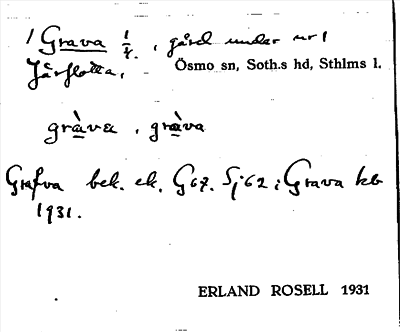 / Grava 1/4. , gård under nr 1
Järflotta,
Ösmo sn, Soth.s hd, Sthlms l.
gràva , gràva
Grafva bek. ek. G67. Sj62; Grava kb
1931.
ERLAND ROSELL 1931